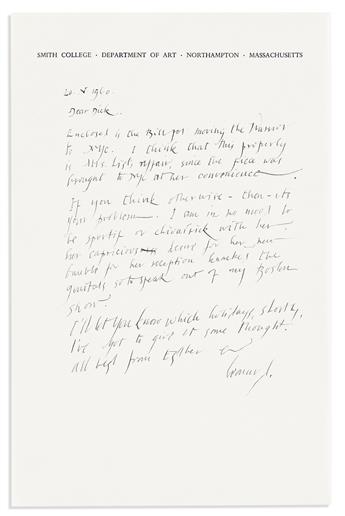 SMITH COLLEGE · DEPARTMENT OF ART · NORTHAMPTON · MASSACHUSETTS
20. V 1960.
Dear Dick.
Enclosed is the Bill for moving the Warrior
to NYC. I think that this properly
is Mrs. List's affair, since the piece was
brought to NYC at her convenience.
If you think otherwise - then - it's
your problem. I am in no mood to
be sportif or chivalrick with her.
her capricious desire for her new
bauble for her reception knocked the
genitals so to speak out of my Boston
show.
I'll let you know which holidays, shortly,
I've got to give it some thought.
all best from
Leonard.